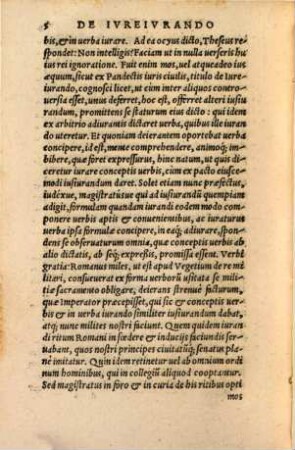 5 DE IVREIVRANDO
bis, & in verba iurare. Ad ea ocyus dicto, Theseus re-
spondet: Non intelligis? Faciam ut in nulla verseris hu
ius rei ignoratione. Fuit enim mos, uel atque adeo ius
æquum, sicut ex Pandectis iuris ciuilis, titulo de iure-
iurando, cognosci licet, ut cum inter aliquos contro-
uersia esset, unus deferret, hoc est, offerret alteri iusiu
randum, promittens se staturum eius dicto: qui idem
ex arbitrio adiuramis dictaret uerba, quibus ille iuran
do uteretur. Et quoniam deierantem oportebat uerba
concipere, id est, mente comprehendere, animoq́; im-
bibere, quæ foret expressurus, hinc natum, ut quis di-
ceretur iurare conceptis uerbis, cum ex pacto eiusce-
modi iusiurandum daret. Solet etiam nunc præfectus,
iudéxue, magistratusue qui ad iusiurandũ quempiam
adigit, formulam quandam iurandi eodem modo com
ponere uerbis aptis & conuenienibus, ac iuraturus
uerba ipsa formulæ concipere, in eaq́; adiurare, spon-
dens se obseruaturum omnia, quæ conceptis uerbis ab
alio dictatis, ab seq́; expreßis, promissa essent. Verbi
gratia: Romanus miles, ut est apud Vegetium de re mi
litari, consueuerat ex forma uerborũ usitata se militiæ
sacramento obligare, deierans strenuè facturum,
quæ Imperator præcepisset, qui sic & conceptis uer-
bis & in uerba iurando similiter iusiurandum dabat,
atq; nunc milites nostri faciunt. Quem quidem iuran
di ritum Romani in fœdere & inducijs faciundis ser-
uabant, quos nostri principes ciuitatũq; senatus pla-
nè imitatur. Quin idem retinetur uel ab omnium ordi
num hominibus, qui in collegiũ aliquod cooptamur.
Sed magistratus in foro & in curia de his ritibus opti
mos